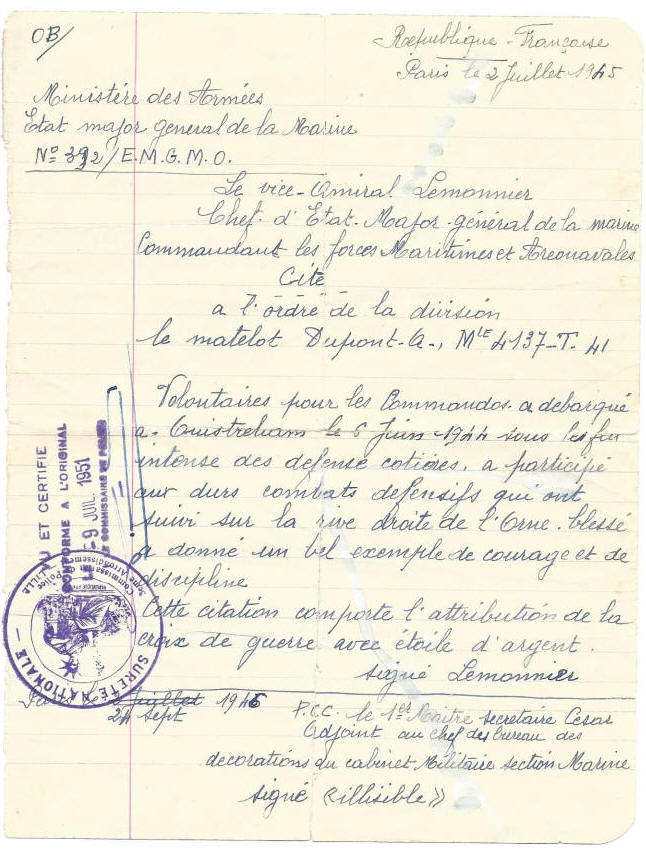 OB/
République-Française
Paris le 2 Juillet 1945
Ministére des Armées
Etat major general de la Marine
Nº 392/E.M.G.M.O.
Le vice-Amiral Lemonnier
Chef. d'Etat. Major général de la marine
Commandant les forces Maritimes et Areonavales
Cite
a l'ordre de la division
le matelot Dupont-A-, MLE 4137-T. 41
Volontaires pour les Commandos. a debarqué
a- Ouistreham le 6 Juin 1944 sous les feu
intense des defense cotières, a participé
aux durs combats defensifs qui ont
suivi sur la rive droite de l'Orne. blessé
a donné un bel exemple de courage et de
discipline
Cette citation comporte l'attribution de la
croix de guerre avec étoile d'argent.
signé Lemonnier
Paris le 2 Juillet 1945
24 Sept
P.C.C. le 1er Maitre secretaire Cesar
Adjoint au chef des bureau des
decorations du cabinet Militaire section Marine
signé «illisible»
VU ET CERTIFIE
CONFORME A L'ORIGINAL
LE -9 JUIL. 1951
LE COMMISSAIRE DE POLICE
SURETE NATIONALE